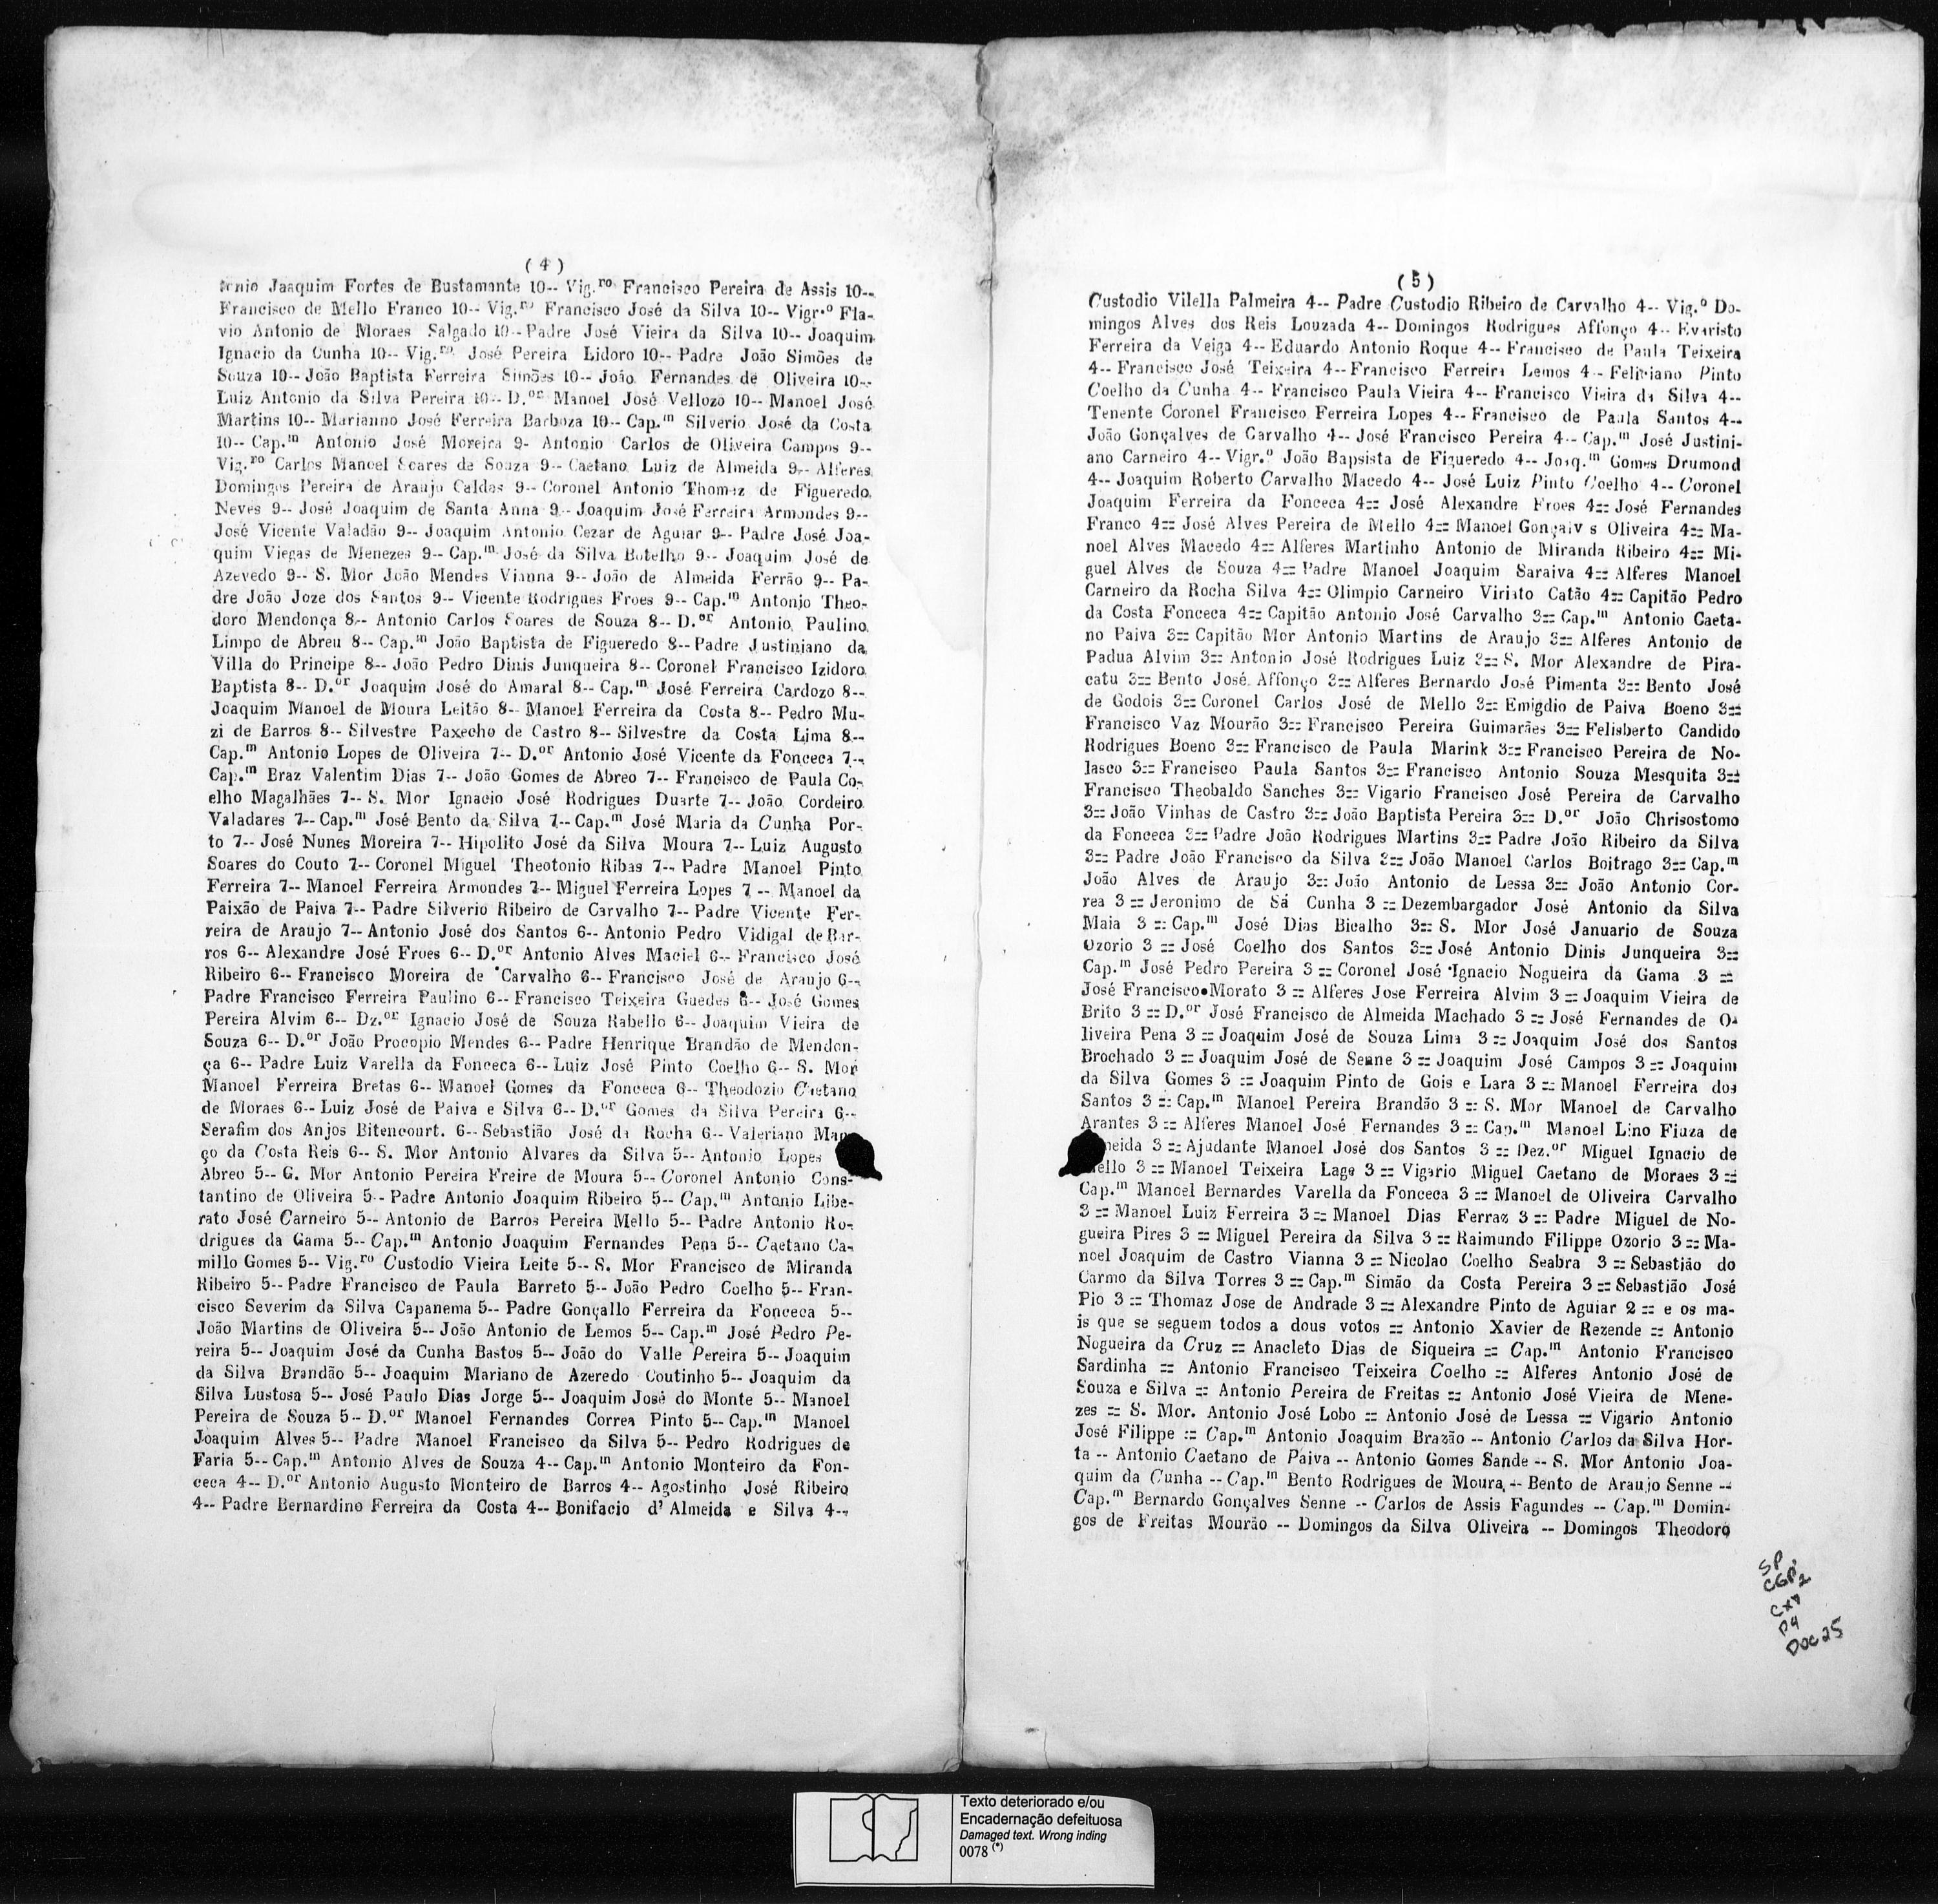 ( 4 )
tonio Jaaquim Fortes de Bustamante 10-- Vig.ro Francisco Pereira de Assis 10--
Francisco de Mello Franco 10-- Vig.ro Francisco José da Silva 10-- Vigr.o Fla-
vio Antonio de Moraes Salgado 10-- Padre José Vieira da Silva 10-- Joaquim
Ignacio da Cunha 10-- Vig.ro José Pereira Lidoro 10-- Padre João Simões de
Souza 10-- João Baptista Ferreira Simões 10-- João Fernandes de Oliveira 10--
Luiz Antonio da Silva Pereira 10-- D.or Manoel José Vellozo 10-- Manoel José
Martins 10-- Marianno José Ferreira Barboza 10-- Cap.m Silverio José da Costa
10-- Cap.m Antonio José Moreira 9- Antonio Carlos de Oliveira Campos 9--
Vig.ro Carlos Manoel Soares de Souza 9-- Caetano Luiz de Almeida 9-- Alferes
Domingos Pereira de Araujo Caldas 9-- Coronel Antonio Thomaz de Figueredo
Neves 9-- José Joaquim de Santa Anna 9-- Joaquim José Ferreira Armondes 9--
José Vicente Valadão 9-- Joaquim Antonio Cezar de Aguiar 9-- Padre José Joa-
quim Viegas de Menezes 9-- Cap.m José da Silva Botelho 9-- Joaquim José de
Azevedo 9-- S. Mor João Mendes Vianna 9-- João de Almeida Ferrão 9-- Pa-
dre João Joze dos Santos 9-- Vicente Rodrigues Froes 9-- Cap.m Antonio Theo-
doro Mendonça 8-- Antonio Carlos Soares de Souza 8-- D.or Antonio Paulino
Limpo de Abreu 8-- Cap.m João Baptista de Figueredo 8-- Padre Justiniano da
Villa do Principe 8-- João Pedro Dinis Junqueira 8-- Coronel Francisco Izidoro
Baptista 8-- D.or Joaquim José do Amaral 8-- Cap.m José Ferreira Cardozo 8--
Joaquim Manoel de Moura Leitão 8-- Manoel Ferreira da Costa 8-- Pedro Mu-
zi de Barros 8-- Silvestre Paxecho de Castro 8-- Silvestre da Costa Lima 8--
Cap.m Antonio Lopes de Oliveira 7-- D.or Antonio José Vicente da Fonceca 7--
Cap.m Braz Valentim Dias 7-- João Gomes de Abreo 7-- Francisco de Paula Co-
elho Magalhães 7-- S. Mor Ignacio José Rodrigues Duarte 7-- João Cordeiro
Valadares 7-- Cap.m José Bento da Silva 7-- Cap.m José Maria da Cunha Por-
to 7-- José Nunes Moreira 7-- Hipolito José da Silva Moura 7-- Luiz Augusto
Soares do Couto 7-- Coronel Miguel Theotonio Ribas 7-- Padre Manoel Pinto
Ferreira 7-- Manoel Ferreira Armondes 7-- Miguel Ferreira Lopes 7 -- Manoel da
Paixão de Paiva 7-- Padre Silverio Ribeiro de Carvalho 7-- Padre Vicente Fer-
reira de Araujo 7-- Antonio José dos Santos 6-- Antonio Pedro Vidigal de Bar-
ros 6-- Alexandre José Froes 6-- D.or Antonio Alves Maciel 6-- Francisco José
Ribeiro 6-- Francisco Moreira de Carvalho 6-- Francisco José de Araujo 6--
Padre Francisco Ferreira Paulino 6-- Francisco Teixeira Guedes 6-- José Gomes
Pereira Alvim 6-- Dz.or Ignacio José de Souza Rabello 6-- Joaquim Vieira de
Souza 6-- D.or João Procopio Mendes 6-- Padre Henrique Brandão de Mendon-
ça 6-- Padre Luiz Varella da Fonceca 6-- Luiz José Pinto Coelho 6-- S. Mor
Manoel Ferreira Bretas 6-- Manoel Gomes da Fonceca 6-- Theodozio Caetano
de Moraes 6-- Luiz José de Paiva e Silva 6-- D.or Gomes da Silva Pereira 6--
Serafim dos Anjos Bitencourt. 6-- Sebastião José da Rocha 6-- Valeriano Man
ço da Costa Reis 6-- S. Mor Antonio Alvares da Silva 5-- Antonio Lopes
Abreo 5-- G. Mor Antonio Pereira Freire de Moura 5-- Coronel Antonio Cons-
tantino de Oliveira 5-- Padre Antonio Joaquim Ribeiro 5-- Cap.m Antonio Libe-
rato José Carneiro 5-- Antonio de Barros Pereira Mello 5-- Padre Antonio Ro-
drigues da Gama 5-- Cap.m Antonio Joaquim Fernandes Pena 5-- Caetano Ca-
millo Gomes 5-- Vig.ro Custodio Vieira Leite 5-- S. Mor Francisco de Miranda
Ribeiro 5-- Padre Francisco de Paula Barreto 5-- João Pedro Coelho 5-- Fran-
cisco Severim da Silva Capanema 5-- Padre Gonçallo Ferreira da Fonceca 5--
João Martins de Oliveira 5-- João Antonio de Lemos 5-- Cap.m José Pedro Pe-
reira 5-- Joaquim José da Cunha Bastos 5-- João do Valle Pereira 5-- Joaquim
da Silva Brandão 5-- Joaquim Mariano de Azeredo Coutinho 5-- Joaquim da
Silva Lustosa 5-- José Paulo Dias Jorge 5-- Joaquim José do Monte 5-- Manoel
Pereira de Souza 5-- D.or Manoel Fernandes Correa Pinto 5-- Cap.m Manoel
Joaquim Alves 5-- Padre Manoel Francisco da Silva 5-- Pedro Rodrigues de
Faria 5-- Cap.m Antonio Alves de Souza 4-- Cap.m Antonio Monteiro da Fon-
ceca 4-- D.or Antonio Augusto Monteiro de Barros 4-- Agostinho José Ribeiro
4-- Padre Bernardino Ferreira da Costa 4-- Bonifacio d' Almeida e Silva 4--
( 5 )
Custodio Vilella Palmeira 4-- Padre Custodio Ribeiro de Carvalho 4-- Vig.o Do-
mingos Alves dos Reis Louzada 4-- Domingos Rodrigues Affonço 4-- Evaristo
Ferreira da Veiga 4-- Eduardo Antonio Roque 4-- Francisco de Paula Teixeira
4-- Francisco José Teixeira 4-- Francisco Ferreira Lemos 4-- Feliciano Pinto
Coelho da Cunha 4-- Francisco Paula Vieira 4-- Francisco Vieira da Silva 4--
Tenente Coronel Francisco Ferreira Lopes 4-- Francisco de Paula Santos 4--
João Gonçalves de Carvalho 4-- José Francisco Pereira 4-- Cap.m José Justini-
ano Carneiro 4-- Vigr.o João Bapsista de Figueredo 4-- Joaq.m Gomes Drumond
4-- Joaquim Roberto Carvalho Macedo 4-- José Luiz Pinto Coelho 4-- Coronel
Joaquim Ferreira da Fonceca 4== José Alexandre Froes 4== José Fernandes
Franco 4== José Alves Pereira de Mello 4== Manoel Gonçalv s Oliveira 4== Ma-
noel Alves Macedo 4== Alferes Martinho Antonio de Miranda Ribeiro 4== Mi-
guel Alves de Souza 4== Padre Manoel Joaquim Saraiva 4== Alferes Manoel
Carneiro da Rocha Silva 4== Olimpio Carneiro Viriato Catão 4== Capitão Pedro
da Costa Fonceca 4== Capitão Antonio José Carvalho 3== Cap.m Antonio Caeta-
no Paiva 3== Capitão Mor Antonio Martins de Araujo 3== Alferes Antonio de
Padua Alvim 3== Antonio José Rodrigues Luiz 3== S. Mor Alexandre de Pira-
catu 3== Bento José Affonço 3== Alferes Bernardo José Pimenta 3== Bento José
de Godois 3== Coronel Carlos José de Mello 3== Emigdio de Paiva Boeno 3==
Francisco Vaz Mourão 3== Francisco Pereira Guimarães 3== Felisberto Candido
Rodrigues Boeno 3== Francisco de Paula Marink 3== Francisco Pereira de No-
lasco 3== Francisco Paula Santos 3== Francisco Antonio Souza Mesquita 3==
Francisco Theobaldo Sanches 3== Vigario Francisco José Pereira de Carvalho
3== João Vinhas de Castro 3== João Baptista Pereira 3== D.or João Chrisostomo
da Fonceca 3== Padre João Rodrigues Martins 3== Padre João Ribeiro da Silva
3== Padre João Francisco da Silva 3== João Manoel Carlos Boitrago 3== Cap.m
João Alves de Araujo 3== João Antonio de Lessa 3== João Antonio Cor-
rea 3 == Jeronimo de Sá Cunha 3 == Dezembargador José Antonio da Silva
Maia 3 == Cap.m José Dias Bicalho 3== S. Mor José Januario de Souza
Ozorio 3 == José Coelho dos Santos 3== José Antonio Dinis Junqueira 3==
Cap.m José Pedro Pereira 3 == Coronel José Ignacio Nogueira da Gama 3 ==
José Francisco Morato 3 == Alferes Jose Ferreira Alvim 3 == Joaquim Vieira de
Brito 3 == D.or José Francisco de Almeida Machado 3 == José Fernandes de O-
liveira Pena 3 == Joaquim José de Souza Lima 3 == Joaquim José dos Santos
Brochado 3 == Joaquim José de Senne 3 == Joaquim José Campos 3 == Joaquim
da Silva Gomes 3 == Joaquim Pinto de Gois e Lara 3 == Manoel Ferreira dos
Santos 3 == Cap.m Manoel Pereira Brandão 3 == S. Mor Manoel de Carvalho
Arantes 3 == Alferes Manoel José Fernandes 3 == Cap.m Manoel Lino Fiuza de
meida 3 == Ajudante Manoel José dos Santos 3 == Dez.or Miguel Ignacio de
ello 3 == Manoel Teixeira Lage 3 == Vigario Miguel Caetano de Moraes 3 ==
Cap.m Manoel Bernardes Varella da Fonceca 3 == Manoel de Oliveira Carvalho
3 == Manoel Luiz Ferreira 3 == Manoel Dias Ferraz 3 == Padre Miguel de No-
gueira Pires 3 == Miguel Pereira da Silva 3 == Raimundo Filippe Ozorio 3 == Ma-
noel Joaquim de Castro Vianna 3 == Nicolao Coelho Seabra 3 == Sebastião do
Carmo da Silva Torres 3 == Cap.m Simão da Costa Pereira 3 == Sebastião José
Pio 3 == Thomaz Jose de Andrade 3 == Alexandre Pinto de Aguiar 2 == e os ma-
is que se seguem todos a dous votos == Antonio Xavier de Rezende == Antonio
Nogueira da Cruz == Anacleto Dias de Siqueira == Cap.m Antonio Francisco
Sardinha == Antonio Francisco Teixeira Coelho == Alferes Antonio José de
Souza e Silva == Antonio Pereira de Freitas == Antonio José Vieira de Mene-
zes == S. Mor. Antonio José Lobo == Antonio José de Lessa == Vigario Antonio
José Filippe == Cap.m Antonio Joaquim Brazão -- Antonio Carlos da Silva Hor-
ta -- Antonio Caetano de Paiva -- Antonio Gomes Sande -- S. Mor Antonio Joa-
quim da Cunha -- Cap.m Bento Rodrigues de Moura, -- Bento de Araujo Senne --
Cap.m Bernardo Gonçalves Senne -- Carlos de Assis Fagundes -- Cap.m Domin-
gos de Freitas Mourão -- Domingos da Silva Oliveira -- Domingos Theodoro
SP
CGP2
CX7
P4
DOC 25
Texto deteriorado e/ou
Encadernação defeituosa
Damaged text. Wrong inding
0078 (*)